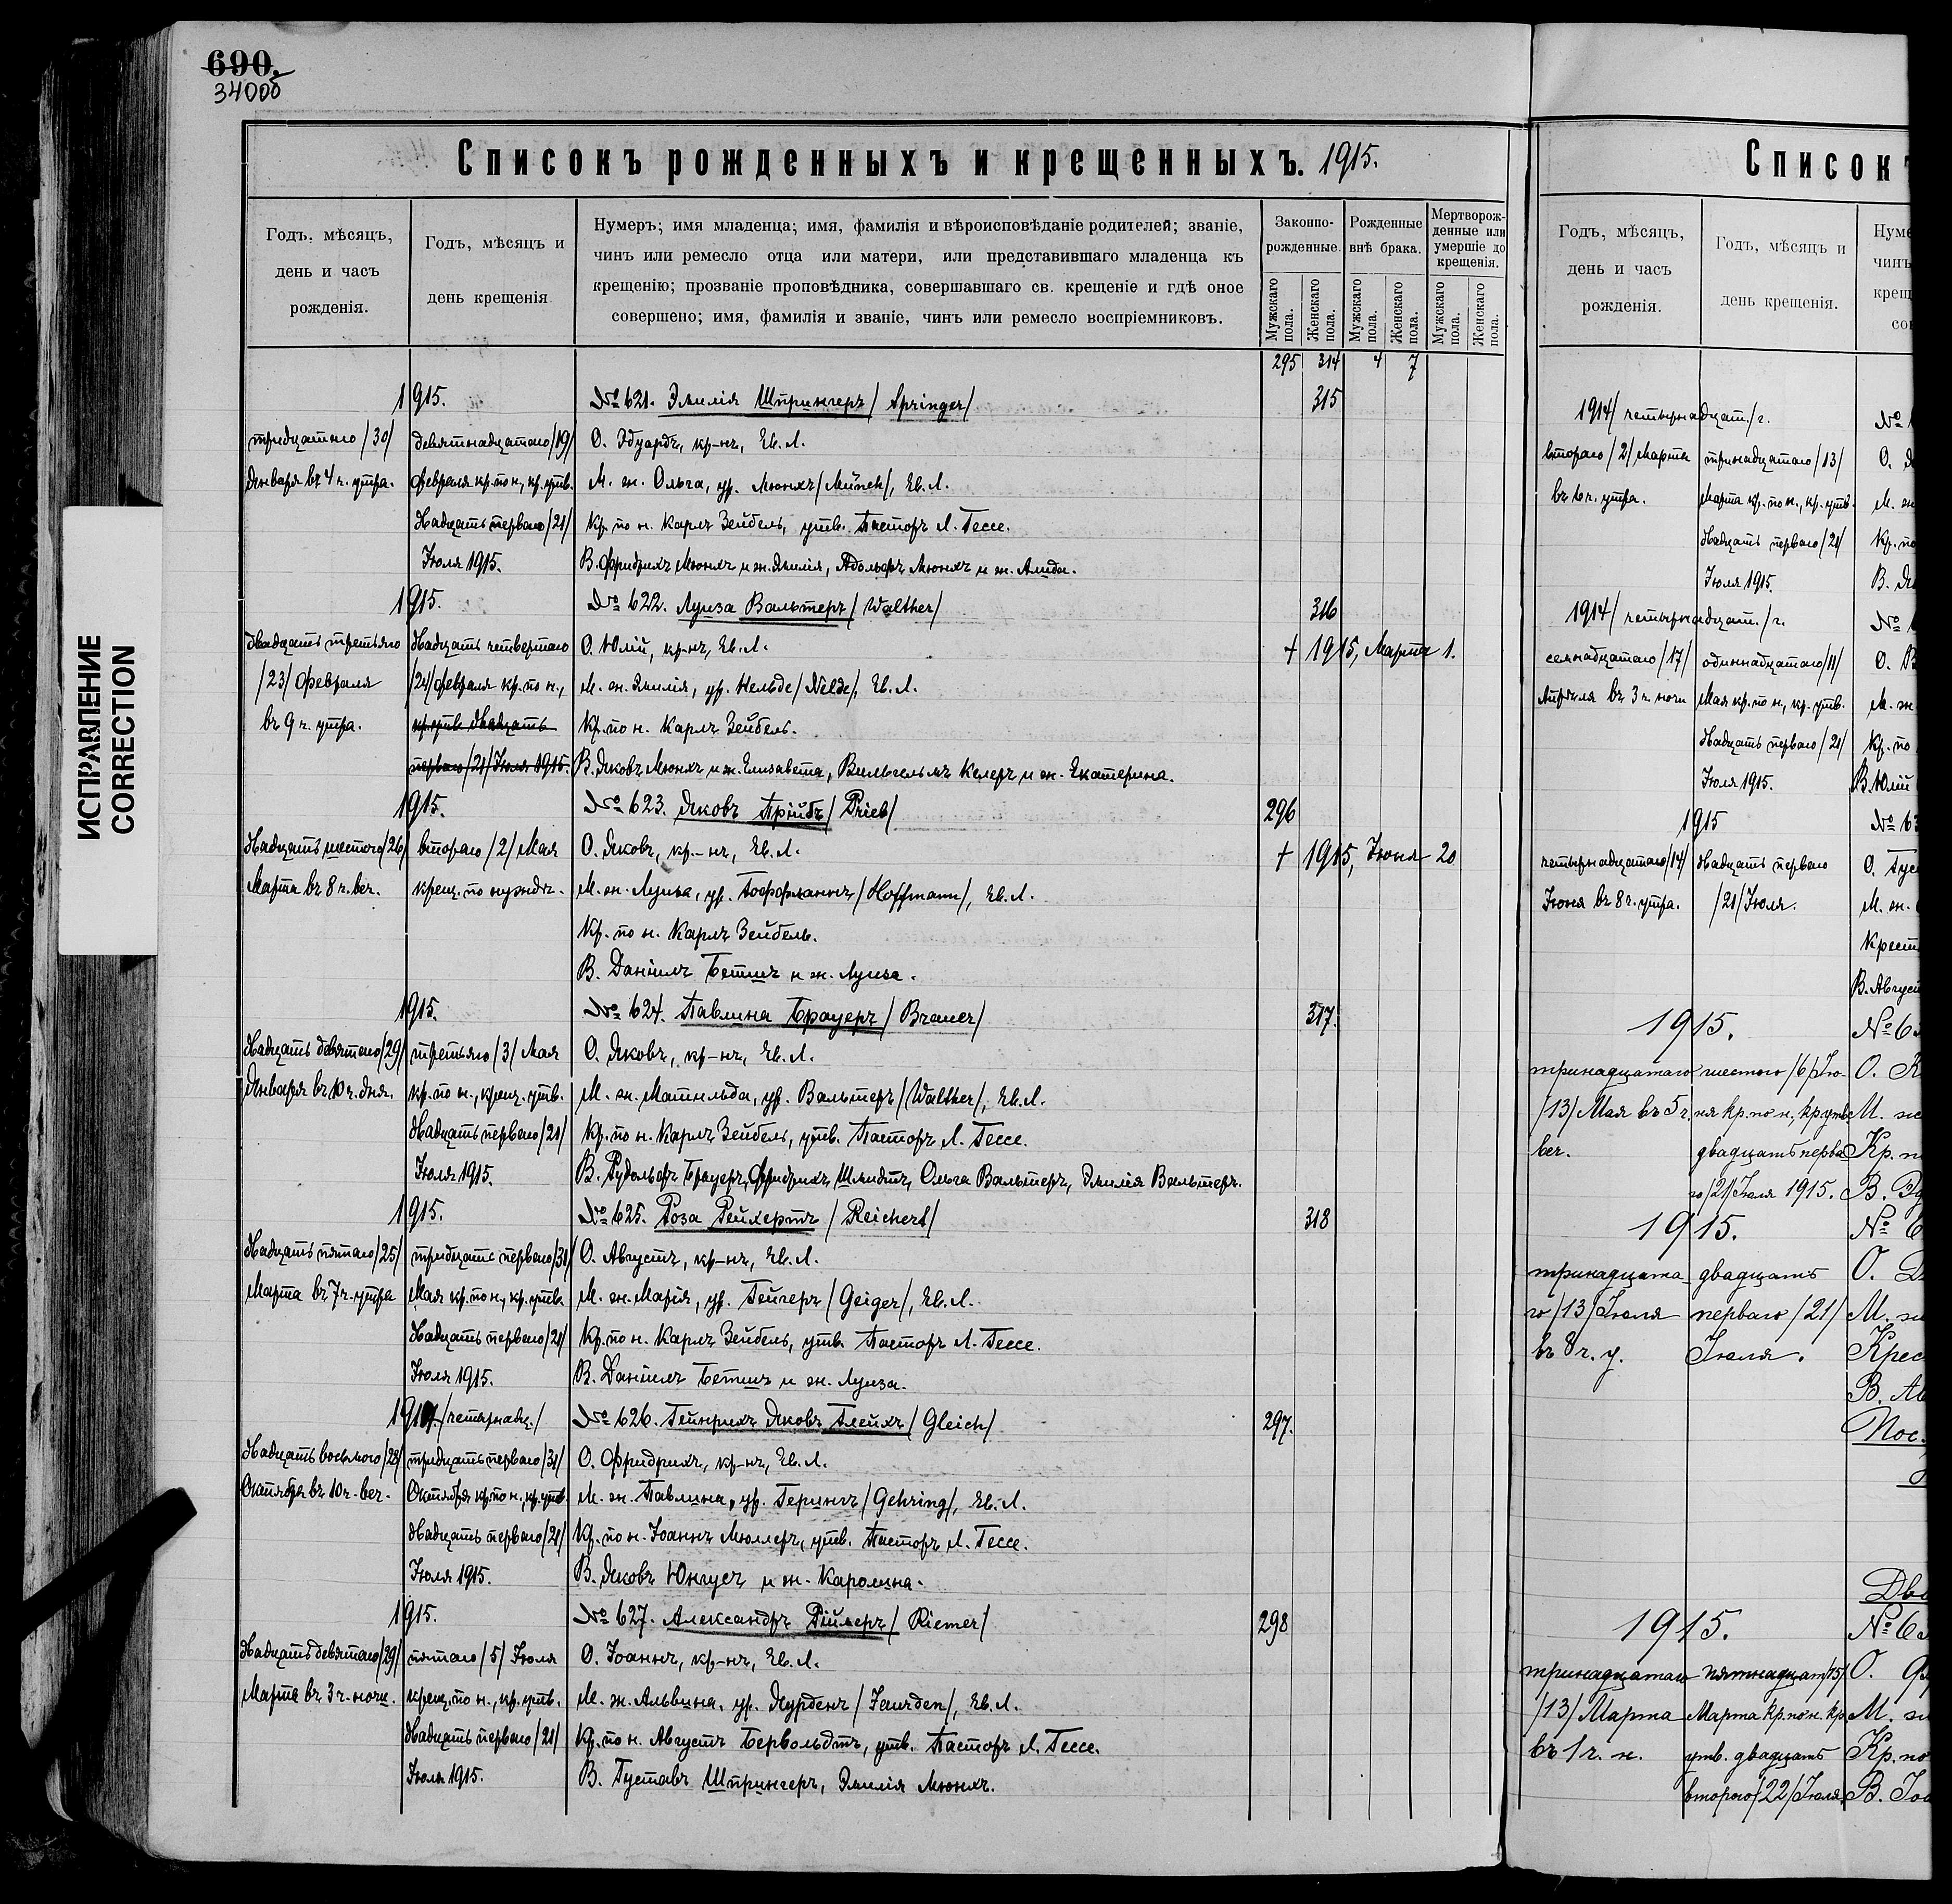 690.
340об
Списокъ рожденныхъ и крещенныхъ. 1915.
Годъ, мѣсяцъ, день и часъ рожденія.
Годъ, мѣсяцъ и день крещенія
Нумеръ; имя младенца; имя, фамилія и вѣроисповѣданіе родителей; званіе,
чинъ или ремесло отца или матери, или представившаго младенца къ
крещенію; прозваніе проповѣдника, совершавшаго св. крещеніе и гдѣ оное
совершено; имя, фамилія и званіе, чинъ или ремесло воспріемниковъ.
Законно-рожденные.
Рожденные внѣ брака.
Мертворож-денные или умершіе до крещенія.
Мужскаго пола.
Женскаго пола.
Мужскаго пола.
Женскаго пола.
Мужскаго пола.
Женскаго пола.
295 314 4 7
1915. № 621. Эмилія Шпрингеръ /Springer/ 315
тридцатаго /30/ девятнадцатаго /19/ О. Эдуардъ, кр-нъ, Ев. Л.
Января въ 4 ч. утра. Февраля кр. по н., кр. утв. М. ж. Ольга, ур. Мюнхъ /Münch/, Ев. Л.
двадцать перваго /21/ Кр. по н. Карлъ Зейбель, утв. Пасторъ Л. Гессе.
Іюля 1915. В. Фридрихъ Мюнхъ и ж. Эмилія, Адольфъ Мюнхъ и ж. Алида.
1915. № 622. Луиза Вальтеръ /Walther/ 316
двадцать третьяго двадцать четвертаго О. Юлій, кр-нъ, Ев. Л. + 1915, Марта 1.
/23/ Февраля /24/ Февраля кр. по н., М. ж. Эмилія, ур. Нельде /Nelde/, Ев. Л.
въ 9 ч. утра. кр. утв. двадцать Кр. по н. Карлъ Зейбель.
перваго /21/ Іюля 1915. В. Яковъ Мюнхъ и ж. Елизавета, Вильгельмъ Келеръ и ж. Екатерина.
1915. № 623. Яковъ Прибъ /Prieb/ 296
двадцать шестого /26/ втораго /2/ Мая О. Яковъ, кр-нъ, Ев. Л. + 1915, Іюня 20
Марта въ 8 ч. веч. крещ. по нуждѣ. М. ж. Луиза, ур. Гоффманнъ /Hoffmann/, Ев. Л.
Кр. по н. Карлъ Зейбель.
В. Даніилъ Бетшъ и ж. Луиза.
1915. № 624. Павлина Брауеръ /Brauer/ 317.
двадцать девятаго /29/ третьяго /3/ Мая О. Яковъ, кр-нъ, Ев. Л.
Января въ 10 ч. дня. кр. по н., крещ. утв. М. ж. Матильда, ур. Вальтеръ /Walther/, Ев. Л.
двадцать перваго /21/ Кр. по н. Карлъ Зейбель, утв. Пасторъ Л. Гессе.
Іюля 1915. В. Рудольфъ Брауеръ, Фридрихъ Шмидтъ, Ольга Вальтеръ, Эмилія Вальтеръ.
1915. № 625. Роза Рейхертъ /Reichert/ 318
двадцать пятаго /25/ тридцать перваго /31/ О. Августъ, кр-нъ, Ев. Л.
Марта въ 7 ч. утра Мая кр. по н., кр. утв. М. ж. Марія, ур. Гейгеръ /Geiger/, Ев. Л.
двадцать перваго /21/ Кр. по н. Карлъ Зейбель, утв. Пасторъ Л. Гессе.
Іюля 1915. В. Даніилъ Бетшъ и ж. Луиза.
1914. /четырнадц./ № 626. Гейнрихъ Яковъ Глейхъ /Gleich/ 297.
двадцать восьмого /28/ тридцать перваго /31/ О. Фридрихъ, кр-нъ, Ев. Л.
Октября въ 10 ч. веч. Октября кр. по н., кр. утв. М. ж. Павлина, ур. Герингъ /Gehring/, Ев. Л.
двадцать перваго /21/ Кр. по н. Іоаннъ Мюллеръ, утв. Пасторъ Л. Гессе.
Іюля 1915. В. Яковъ Юнгусъ и ж. Каролина.
1915. № 627. Александръ Римеръ /Riemer/ 298
двадцать девятаго /29/ пятаго /5/ Іюля О. Іоаннъ, кр-нъ, Ев. Л.
Марта въ 3 ч. ночи. крещ. по н., кр. утв. М. ж. Альвина, ур. Яурденъ /Jaurden/, Ев. Л.
двадцать перваго /21/ Кр. по н. Августъ Бервольдтъ, утв. Пасторъ Л. Гессе.
Іюля 1915. В. Густавъ Шпрингеръ, Эмилія Мюнхъ.
ИСПРАВЛЕНИЕ
CORRECTION
Списокъ
Годъ, мѣсяцъ, день и часъ рожденія.
Годъ, мѣсяцъ и день крещенія.
1914 /четырнадцат./ г. №
втораго /2/ Марта тринадцатаго /13/ О.
въ 6 ч. утра. Марта кр. по н., кр. утв. М. ж
двадцать перваго /21/ Кр. по
Іюля 1915. В.
1914 /четырнадцат./ г. №
семнадцатаго /17/ одиннадцатаго /11/ О. В
Апрѣля въ 3 ч. ночи Мая кр. по н., кр. утв. М. ж
двадцать перваго /21/ Кр. по
Іюля 1915. В. Юлій
1915 № 63
четырнадцатаго /14/ двадцать перваго О. Гус
Іюня въ 8 ч. утра. /21/ Іюля. М. ж.
Крест
В. Авгус
1915. № 6
тринадцатаго шестого /6/ Ію- О. К
/13/ Мая въ 5 ч. ня кр. по н., кр утв. М. ж
веч. двадцать перва- Кр. п
го /21/ Іюля 1915. В. Эд
1915. № 6
тринадцата- двадцать О.
го /13/ Іюля перваго /21/ М. ж
въ 8 ч. у. Іюля. Крес
В. Ав
Пос
Два
1915. № 6
тринадцатаго пятнадцат /15/ О.
/13/ Марта Марта кр. по н. кр. М. ж
въ 1 ч. н. утв. двадцать Кр. по
второго /22/ Іюля. В. Іо